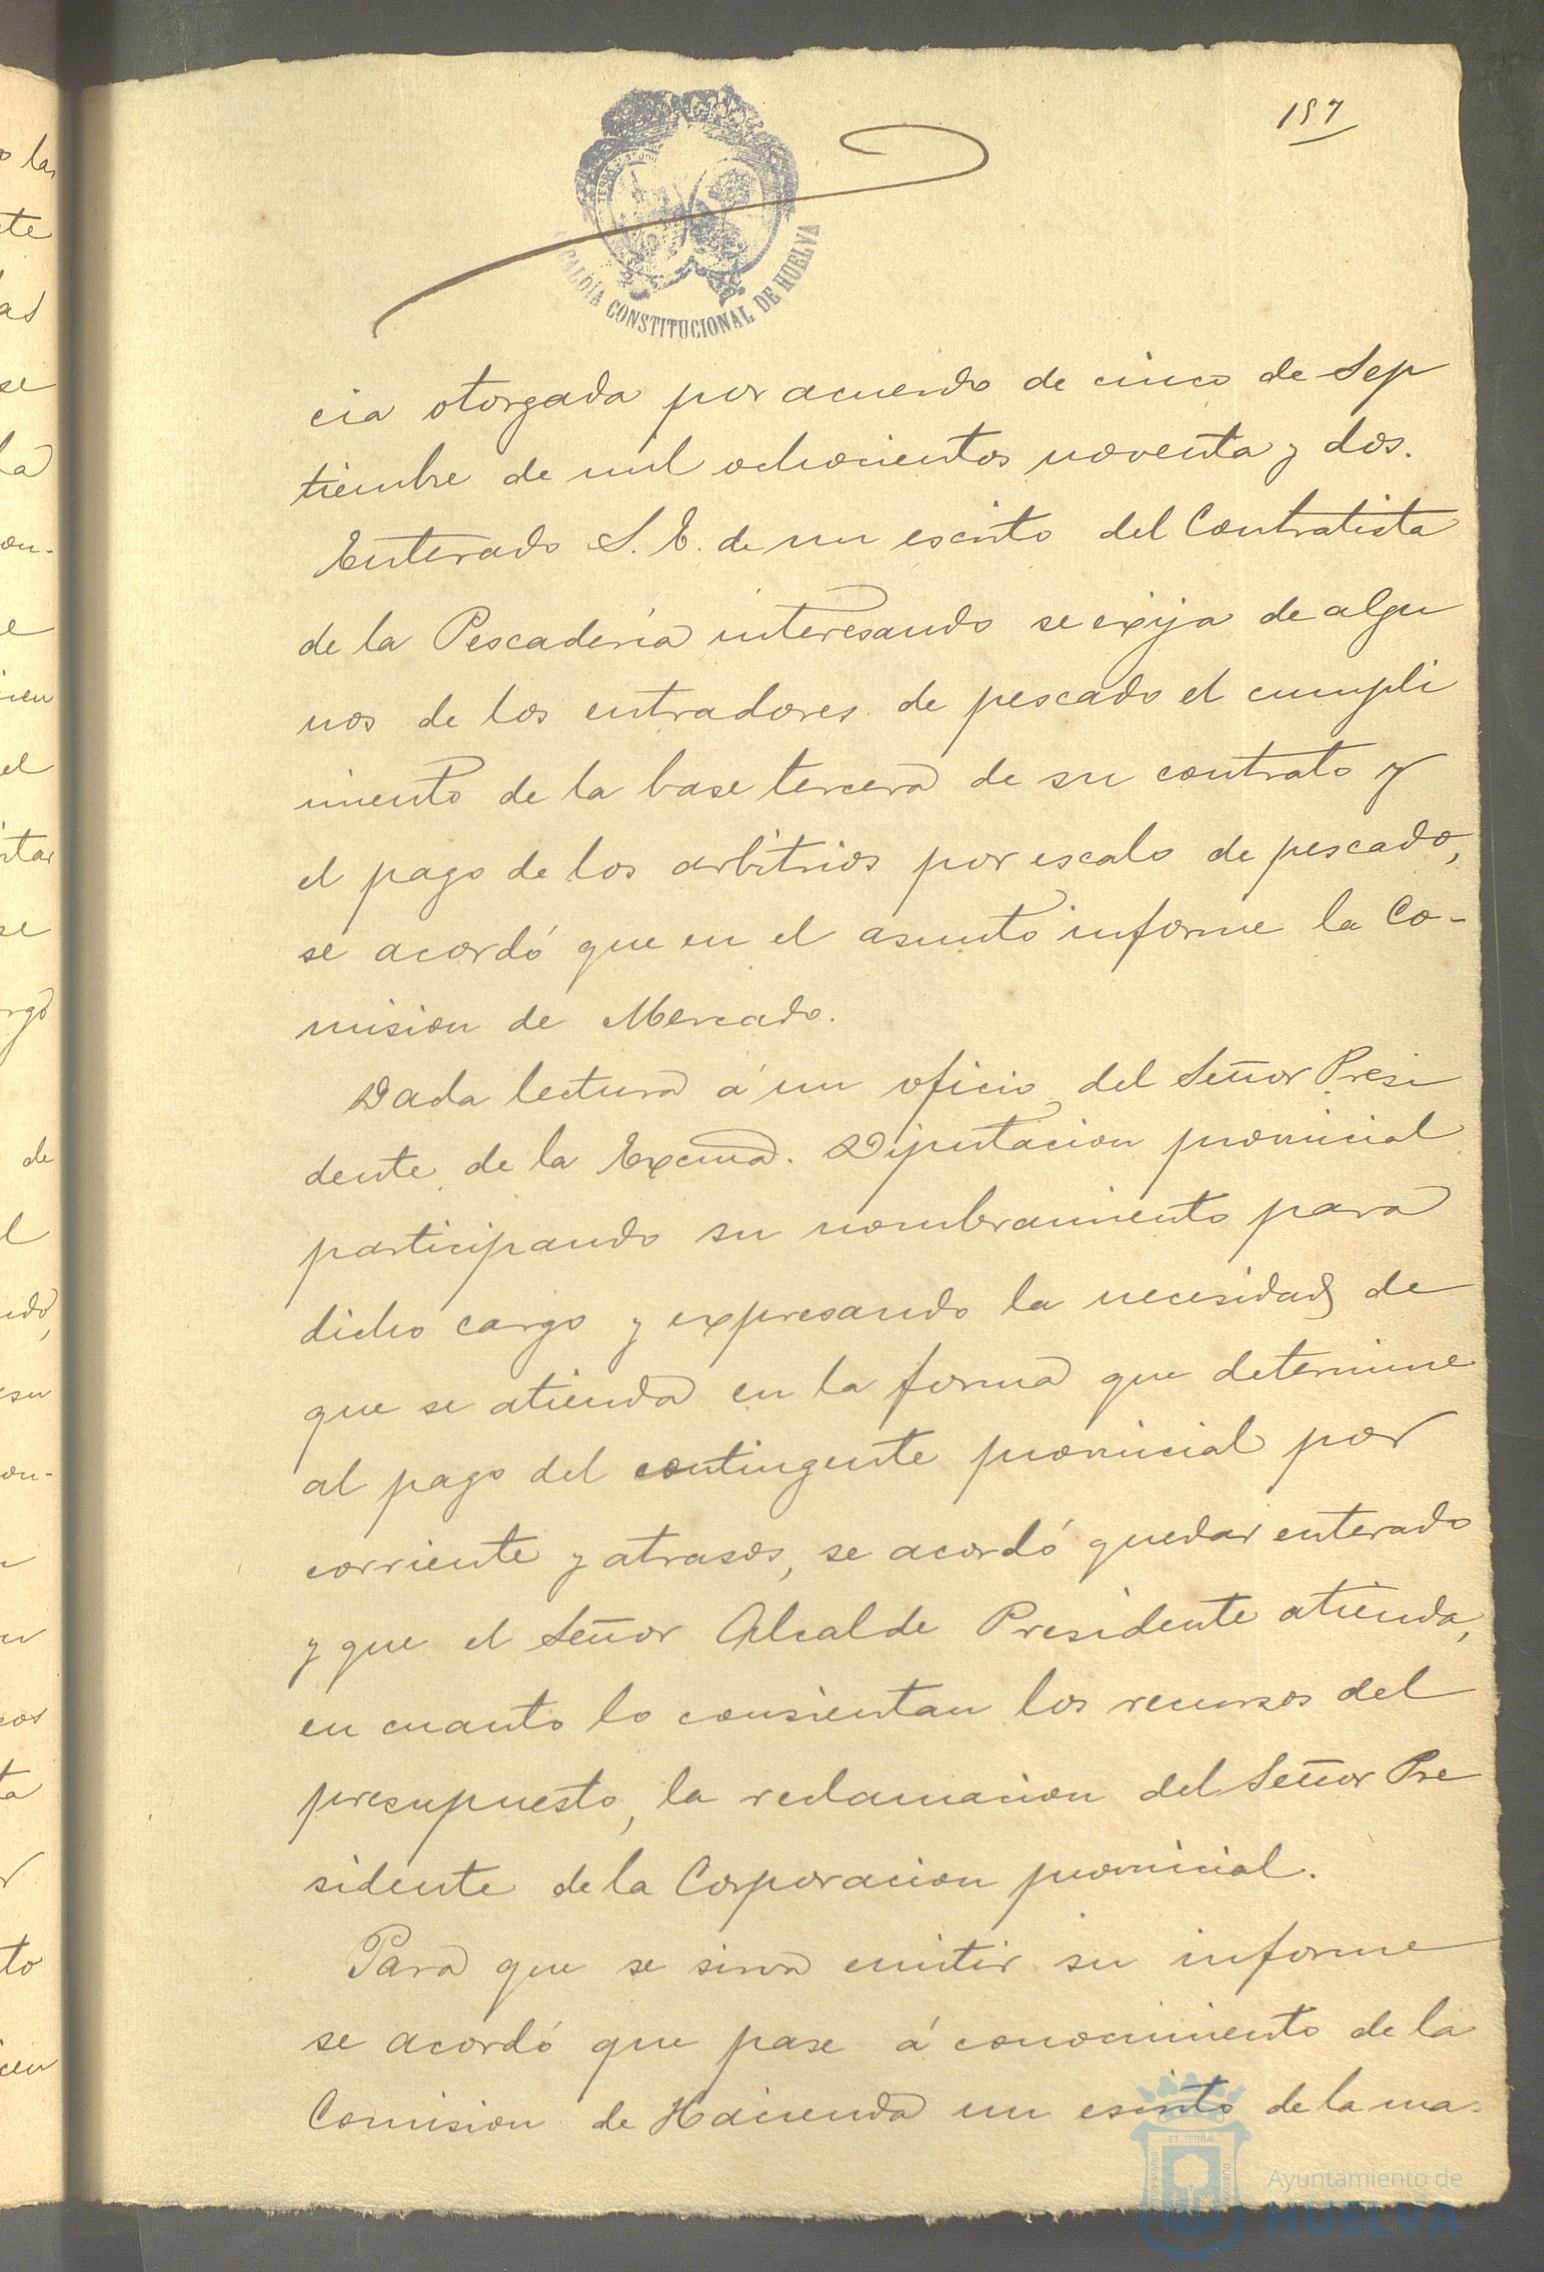 197
ALCALDÍA CONSTITUCIONAL DE HUELVA
cia otorgada por acuerdo de cinco de Sep
tiembre de mil ochocientos noventa y dos.
Enterado S. E. de un escrito del Contratista
de la Pescadería interesando se exija de algu
nos de los entradores de pescado el cumpli
miento de la base tercera de su contrato y
el pago de los arbitrios por escalo de pescado,
se acordó que en el asunto informe la Co-
mision de Mercado.
Dada lectura á un oficio del Señor Presi
dente de la Excma. Diputacion provincial
participando su nombramiento para
dicho cargo y expresando la necesidad de
que se atienda en la forma que determine
al pago del contingente provincial por
corriente y atrasos, se acordó quedar enterado
y que el Señor Alcalde Presidente atienda,
en cuanto lo consientan los recursos del
presupuesto, la reclamacion del Señor Pre
sidente de la Corporacion provincial.
Para que se sirva emitir su informe
se acordó que pase á conocimiento de la
Comision de Hacienda un escrito de la ma-
Ayuntamiento de
HUELVA